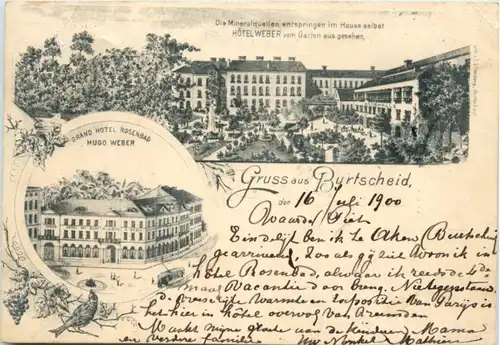 Die Mineralquellen entspringen im Hause selbst
HÔTEL WEBER vom Garten aus gesehen,
GRAND HOTEL ROSENBAD
HUGO WEBER
Gruss aus Burtscheid,
den 16 July 1900
Waarde Piet
Eindelijk ben ik te Aken (Burtscheid
gearriveerd, zoo als gij ziet woon ik in
hôtel Rosenbad, alwaar ik reeds de 4de
maal Vacantie door breng.
De vreeselijke Warmte en Expositie van Parijs is
het hier in hôtel overvol van Vreemden
Maakt mijne groete aan de kinderen, Mama
en verdere familie Uw Nonkel Mathieu